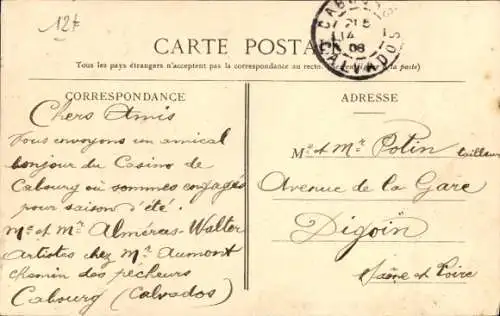 12f
CARTE POSTA
Tous les pays étrangers n'acceptent pas la correspondance au recto à la poste)
CABOURG
14
08
CALVADOS
CORRESPONDANCE
Chers Amis
Vous envoyons un amical
bonjour du Casino de
Cabourg où sommes engagés
pour saison d'été.
Me et Mr Alméras-Walter
Artistes chez Mr Aumont
chemin des pêcheurs
Cabourg (Calvados)
ADRESSE
Me et Mr Potin tailleur
Avenue de la Gare
Digoin
Saône et Loire